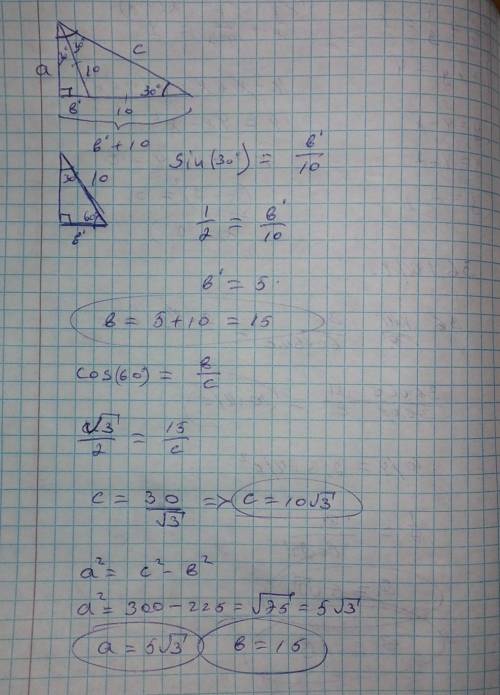 a 30° 30° 10 c
b' 10 30°
b' + 10
30 10 60°
b'
sin(30°) = b'/10
1/2 = b'/10
b' = 5
b = 5 + 10 = 15
cos(60°) = b/c
√3/2 = 15/c
c = 30/√3 => c = 10√3
a² = c² - b²
a² = 300 - 225 = √75 = 5√3
a = 5√3 b = 15